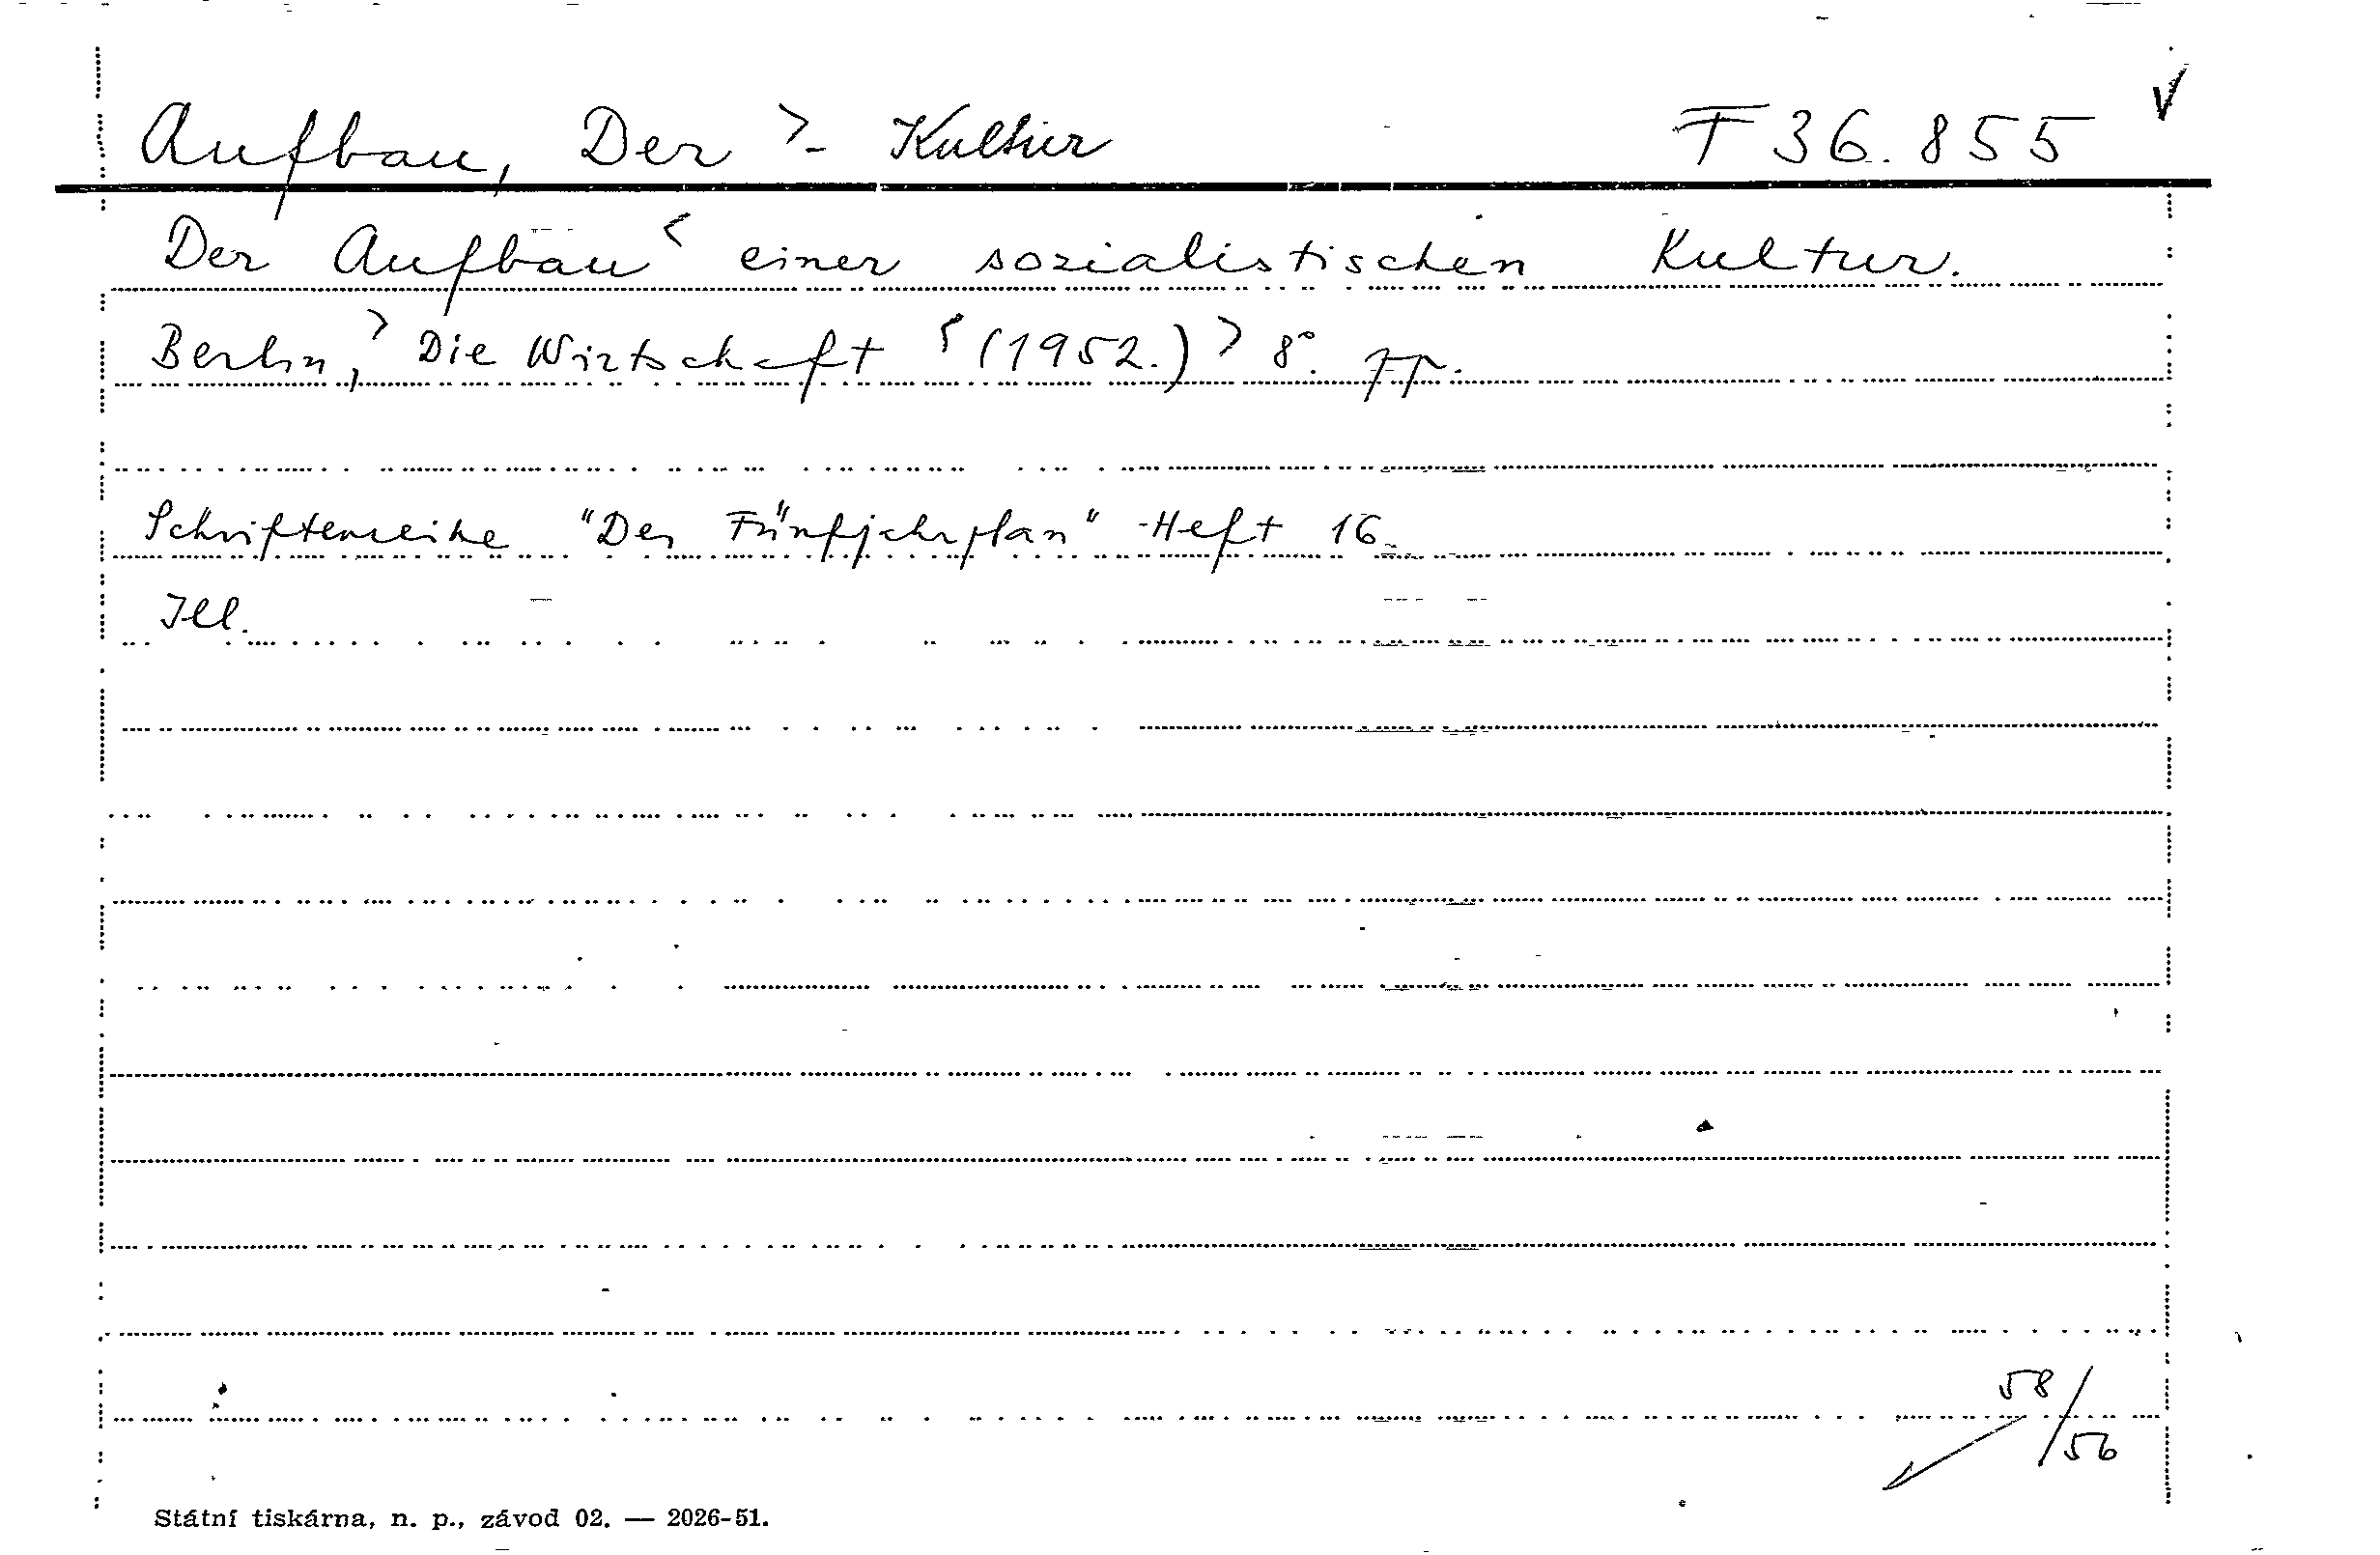 Aufbau, Der > - Kultur F 36.855
Der Aufbau < einer sozialistischen Kultur.
Berlin, > Die Wirtschaft < (1952.) > 8°. pp.
Schriftenreihe "Der Fünfjahrplan" - Heft 16.
Ill.
58/56
Státní tiskárna, n. p., závod 02. — 2026-51.